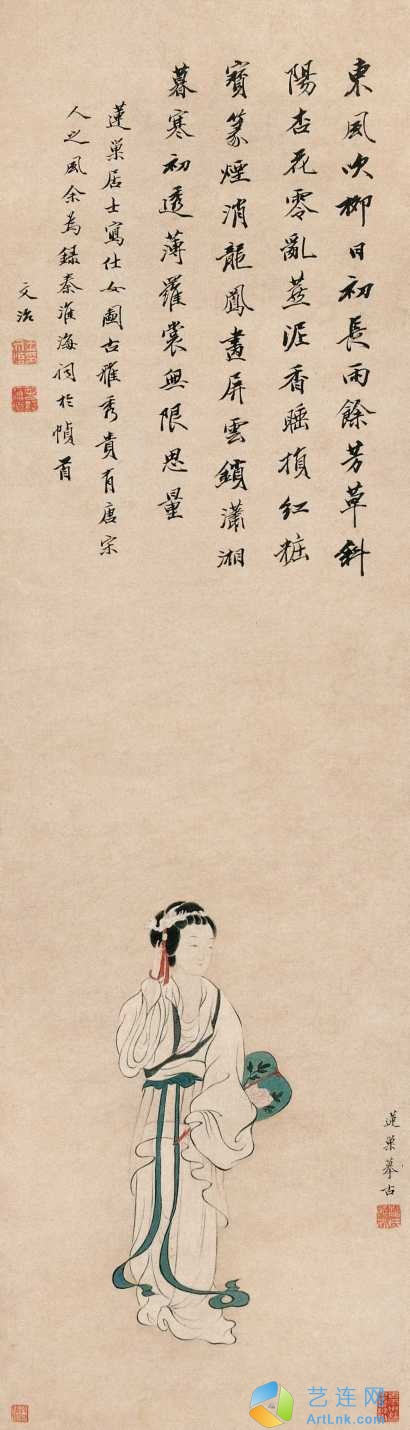 東風吹柳日初長雨餘芳草斜
陽杏花零亂燕泥香睡損紅粧
寶篆煙消龍鳳畫屏雲鎖瀟湘
暮寒初透薄羅裳無限思量
蓮巢居士寫仕女圖古雅秀貴有唐宋
人之風余為錄秦淮海詞於幀首
文治
蓮巢摹古
艺连网
ArtLnk.com